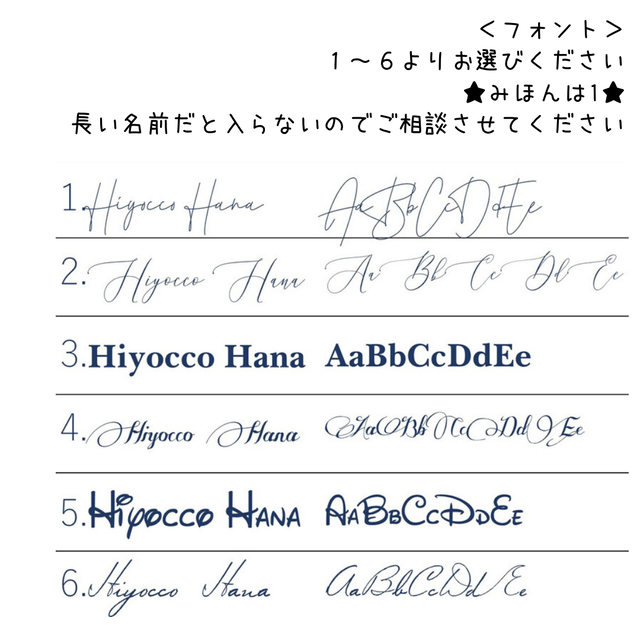 ＜フォント＞
1～6よりお選びください
★みほんは1★
長い名前だと入らないのでご相談させてください
1.Hiyocco Hana AaBbCcDdEe
2.Hiyocco Hana Aa Bb Cc Dd Ee
3.Hiyocco Hana AaBbCcDdEe
4.Hiyocco Hana AaBbCcDdEe
5.Hiyocco Hana AaBbCcDdEe
6.Hiyocco Hana AaBbCcDdEe